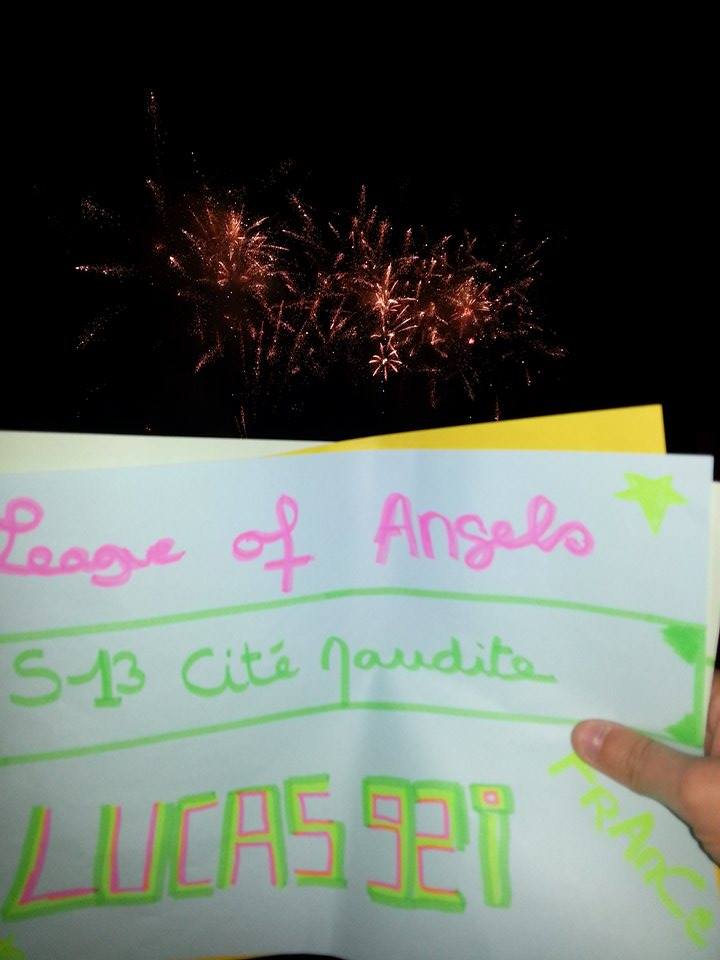 League of Angels
S-13 Cité Maudite
LUCAS 921
FRANCE